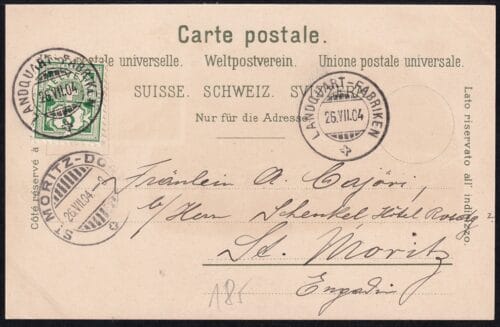 Carte postale.
postale universelle. Weltpostverein. Unione postale universale.
SUISSE. SCHWEIZ. SVIZZERA.
Nur für die Adresse
Côté réservé à
Lato riservato all' indirizzo.
LANDQUART-FABRIKEN
26.VII.04
LANDQUART-FABRIKEN
26.VII.04
ST MORITZ-DO
26.VII.04
Fräulein A. Cajöri,
b/Herr Schenkel Hôtel
St. Moritz
Engadin
185